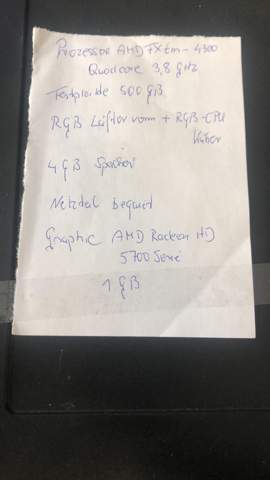 Prozessor AMD FX tm - 4300
Quadcore 3,8 GHz
Festplatte 500 GB
RGB Lüfter vorn + RGB-CPU
Kühler
4 GB Speicher
Netzteil bequiet
Graphic AMD Radeon HD
5700 Serie
1 GB